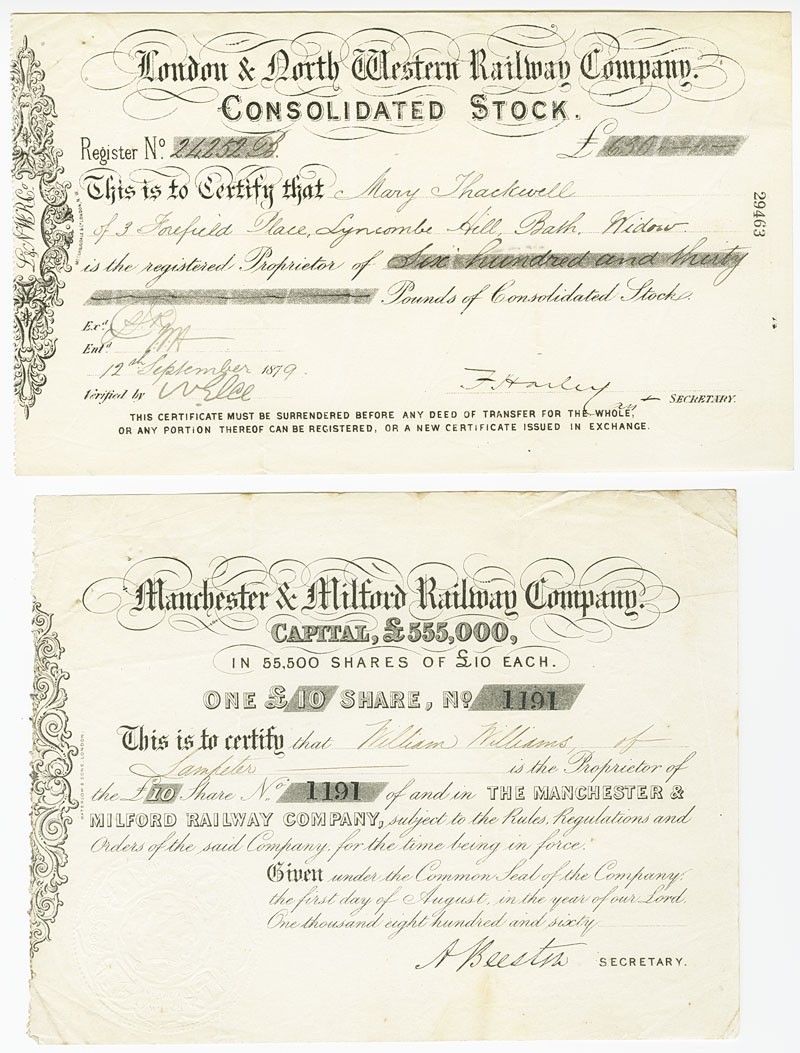 London & North Western Railway Company.
CONSOLIDATED STOCK.
Register No. 24252 B. £ 630
This is to Certify that Mary Thackwell
of 3 Forefield Place, Lyncombe Hill, Bath, Widow
is the registered Proprietor of Six hundred and thirty
Pounds of Consolidated Stock.
Exd.
Entd.
12th September 1879.
Verified by W Elce
F. Harley
SECRETARY.
THIS CERTIFICATE MUST BE SURRENDERED BEFORE ANY DEED OF TRANSFER FOR THE WHOLE,
OR ANY PORTION THEREOF CAN BE REGISTERED, OR A NEW CERTIFICATE ISSUED IN EXCHANGE.
29463
L&NWRCo
Manchester & Milford Railway Company.
CAPITAL, £555,000,
IN 55,500 SHARES OF £10 EACH.
ONE £10 SHARE, No 1191
This is to certify that William Williams of
Lampeter is the Proprietor of
the £10 Share No. 1191 of and in THE MANCHESTER &
MILFORD RAILWAY COMPANY, subject to the Rules, Regulations and
Orders of the said Company, for the time being in force.
Given under the Common Seal of the Company,
the first day of August, in the year of our Lord,
One thousand eight hundred and sixty
A Beeston SECRETARY.